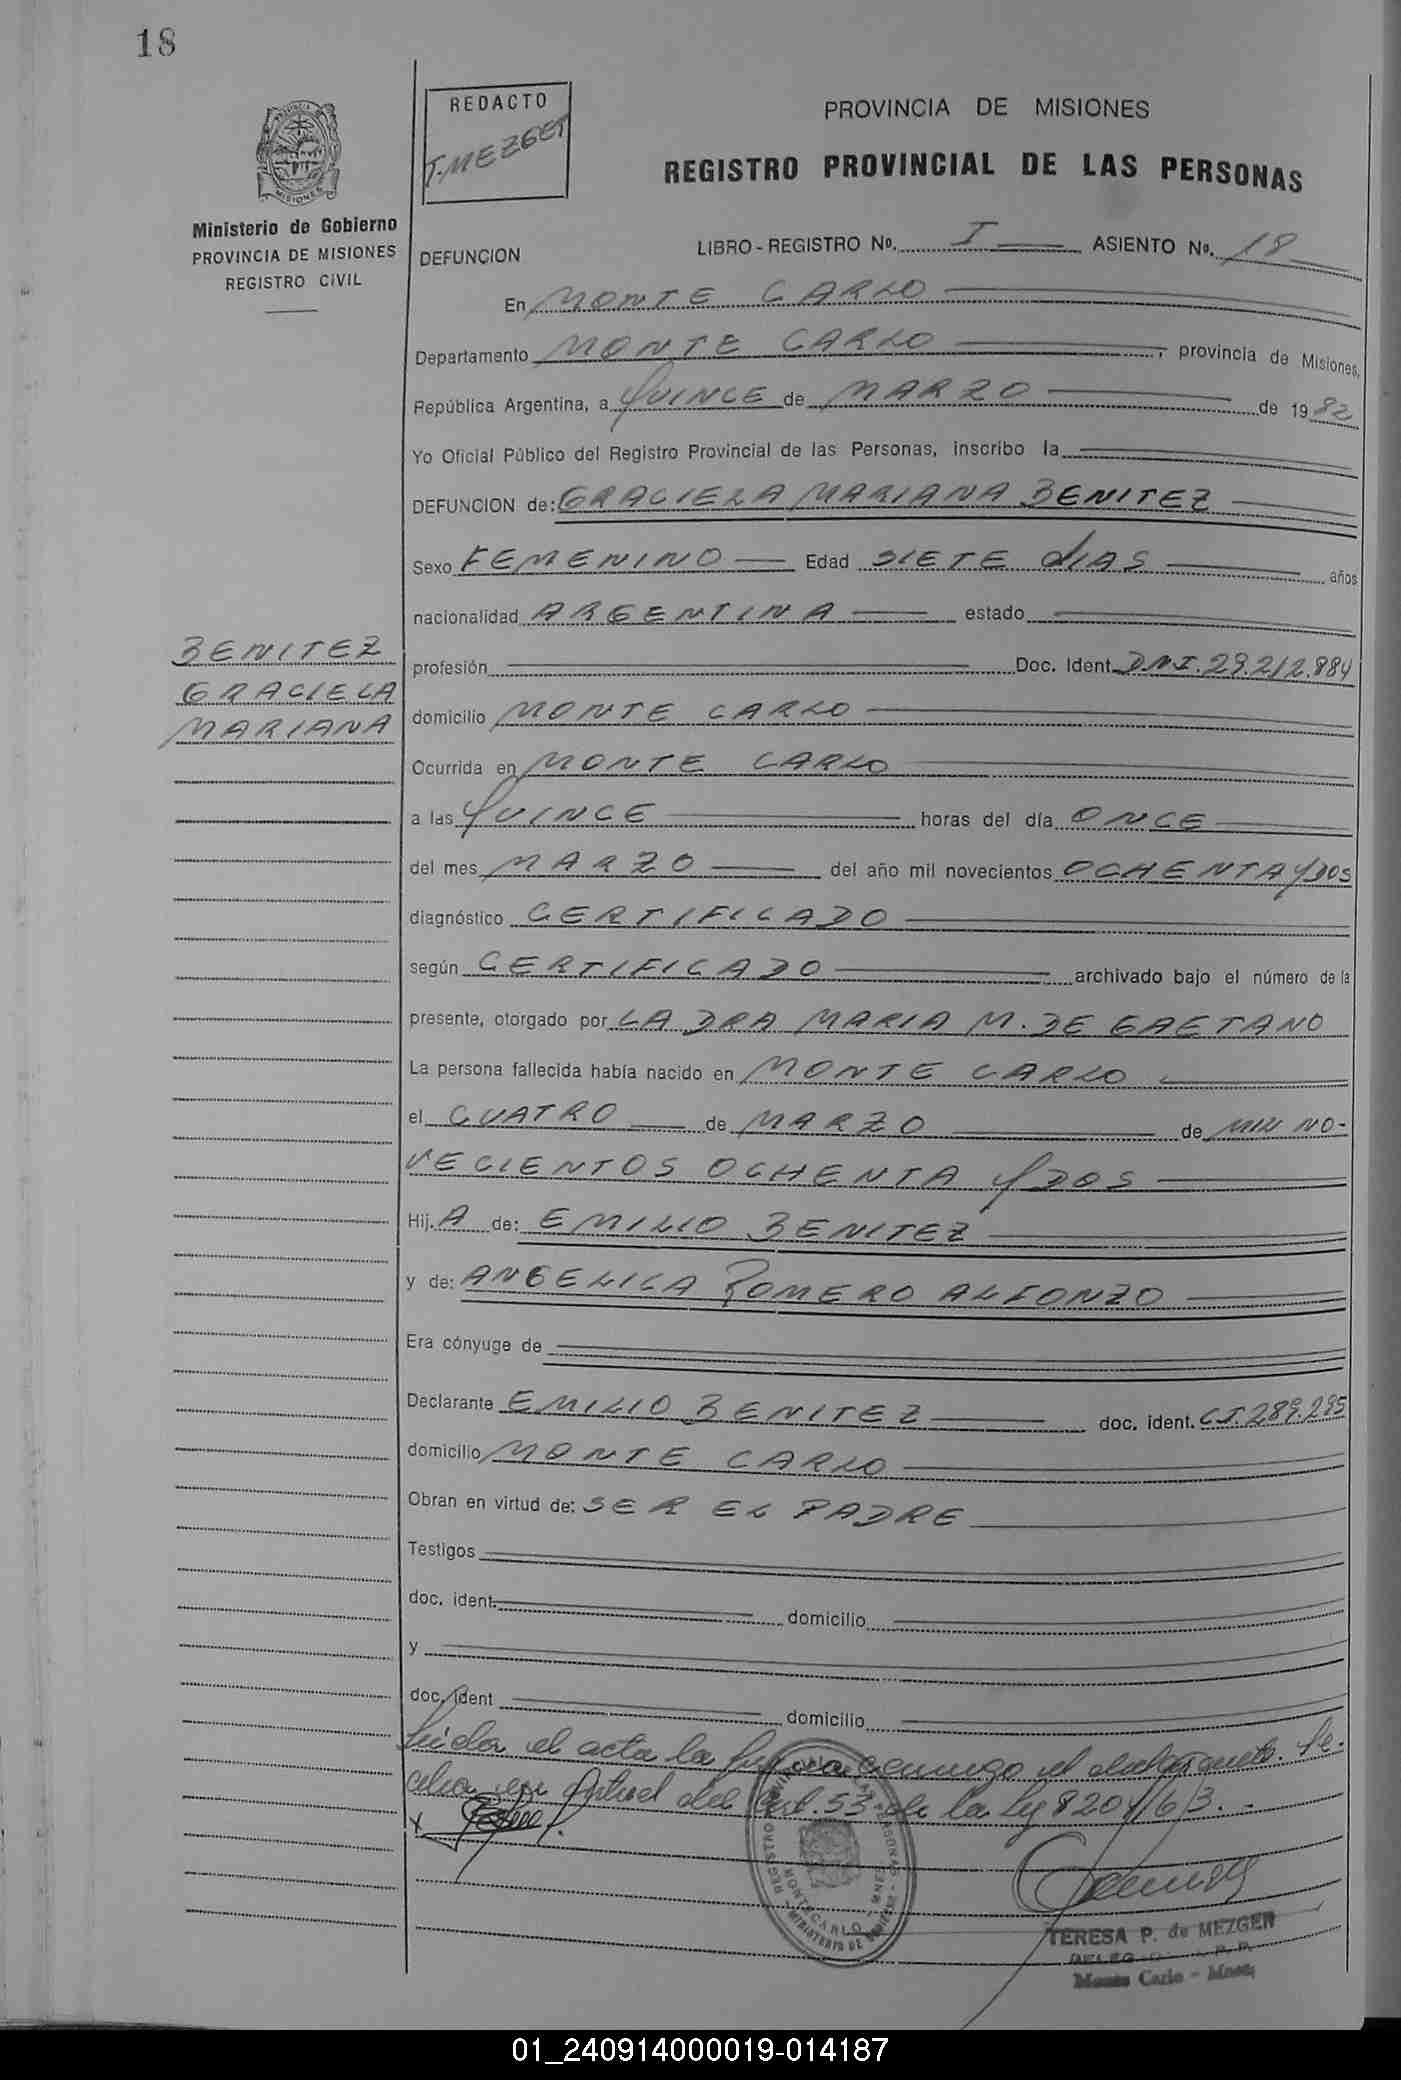 18
REDACTO
T. MEZGER
Ministerio de Gobierno
PROVINCIA DE MISIONES
REGISTRO CIVIL
PROVINCIA DE MISIONES
REGISTRO PROVINCIAL DE LAS PERSONAS
DEFUNCION LIBRO - REGISTRO Nº. I ASIENTO Nº. 18
En MONTE CARLO
Departamento MONTE CARLO, provincia de Misiones,
República Argentina, a QUINCE de MARZO de 1982
Yo Oficial Público del Registro Provincial de las Personas, inscribo la
DEFUNCION de: GRACIELA MARIANA BENITEZ
Sexo FEMENINO Edad SIETE DIAS años
nacionalidad ARGENTINA estado
BENITEZ
GRACIELA
MARIANA
profesión Doc. Ident. D.N.I. 29.212.884
domicilio MONTE CARLO
Ocurrida en MONTE CARLO
a las QUINCE horas del día ONCE
del mes MARZO del año mil novecientos OCHENTA Y DOS
diagnóstico CERTIFICADO
según CERTIFICADO archivado bajo el número de la
presente, otorgado por LA DRA MARIA M. DE GAETANO
La persona fallecida había nacido en MONTE CARLO
el CUATRO de MARZO de MIL NO-
VECIENTOS OCHENTA Y DOS
Hij.A de: EMILIO BENITEZ
y de: ANGELICA ROMERO ALFONZO
Era cónyuge de
Declarante EMILIO BENITEZ doc. ident. C.I. 289.295
domicilio MONTE CARLO
Obran en virtud de: SER EL PADRE
Testigos
doc. ident. domicilio
y
doc. ident domicilio
Leida el acta la firma conmigo el declarante. Se
en virtud del Art. 53 de la Ley 8204/63.-
x
REGISTRO PROVINCIAL DE LAS PERSONAS
MONTECARLO - MNES
MINISTERIO DE GOBIERNO
TERESA P. de MEZGER
Monte Carlo - Mnes.
01_240914000019-014187